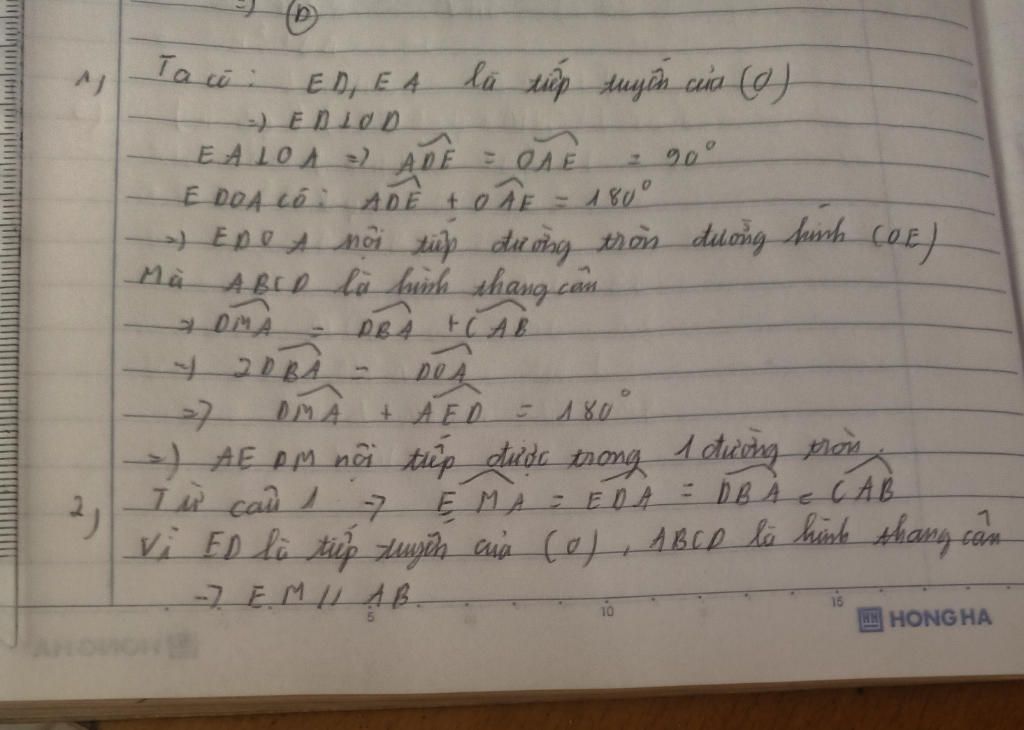 =) Ⓓ
1, Ta có: ED, EA là tiếp tuyến của (O)
=) ED ⊥ OD
EA ⊥ OA =) \widehat{ADE} = \widehat{OAE} = 90°
EDOA có: \widehat{ADE} + \widehat{OAE} = 180°
=) EDOA nội tiếp đường tròn đường kính (OE)
Mà ABCD là hình thang cân
=) \widehat{DMA} = \widehat{DBA} + \widehat{CAB}
=) 2\widehat{DBA} = \widehat{DOA}
=) \widehat{DMA} + \widehat{AED} = 180°
=) AEDM nội tiếp được trong 1 đường tròn.
2, Từ câu 1 -> \widehat{EMA} = \widehat{EDA} = \widehat{DBA} = \widehat{CAB}
Vì ED là tiếp tuyến của (O), ABCD là hình thang cân
-> EM // AB.
5 10 15
HH HONG HA